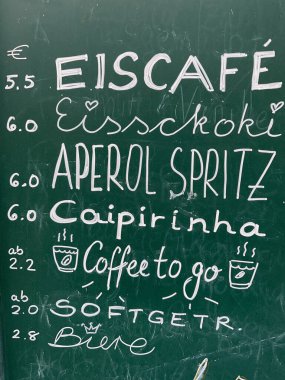 €
5.5 EISCAFÉ
6.0 Eissckoki
6.0 APEROL SPRITZ
6.0 Caipirinha
ab
2.2 Coffee to go
ab
2.0 SOFTGETR.
2.8 Biere